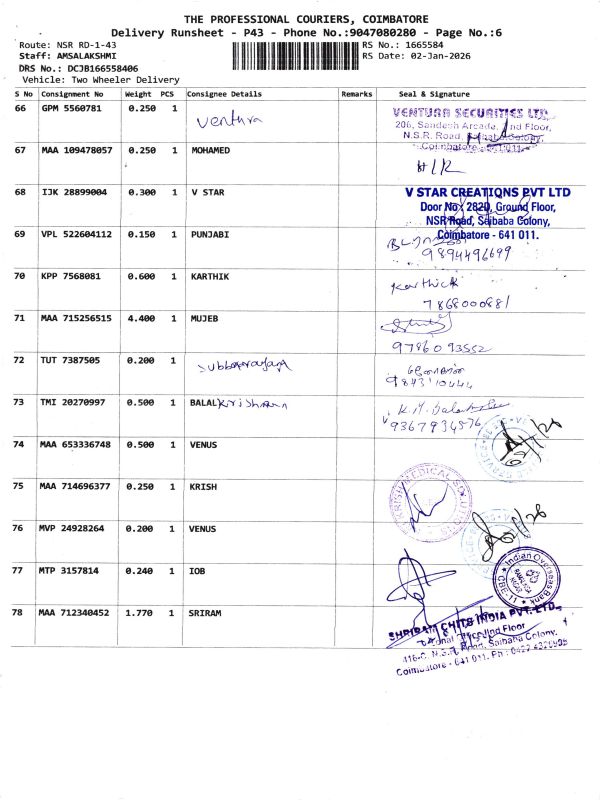 THE PROFESSIONAL COURIERS, COIMBATORE
Delivery Runsheet - P43 - Phone No.:9047080280 - Page No.:6
Route: NSR RD-1-43 RS No.: 1665584
Staff: AMSALAKSHMI RS Date: 02-Jan-2026
DRS No.: DCJB166558406
Vehicle: Two Wheeler Delivery
S No Consignment No Weight PCS Consignee Details Remarks Seal & Signature
66 GPM 5560781 0.250 1 Ventura VENTURA SECURITIES LTD.
206, Sandesh Arcade, IInd Floor,
N.S.R. Road, Saibaba Colony,
Coimbatore - 641 011.
67 MAA 109478057 0.250 1 MOHAMED
68 IJK 28899004 0.300 1 V STAR V STAR CREATIONS PVT LTD
Door No: 282D, Ground Floor,
NSR Road, Saibaba Colony,
Coimbatore - 641 011.
69 VPL 522604112 0.150 1 PUNJABI
9894496699
70 KPP 7568081 0.600 1 KARTHIK Karthick
7868000881
71 MAA 715256515 4.400 1 MUJEB
9786093552
72 TUT 7387505 0.200 1 Subbanarayana
9843110444
73 TMI 20270997 0.500 1 BALAL Krishnan
9367934576
74 MAA 653336748 0.500 1 VENUS
75 MAA 714696377 0.250 1 KRISH
76 MVP 24928264 0.200 1 VENUS
77 MTP 3157814 0.240 1 IOB Indian Overseas Bank
78 MAA 712340452 1.770 1 SRIRAM SHRIRAM CHITS INDIA PVT. LTD.
IInd Floor
416-C, N.S.R. Road, Saibaba Colony,
Coimbatore - 641 011. Ph : 0422 4326505